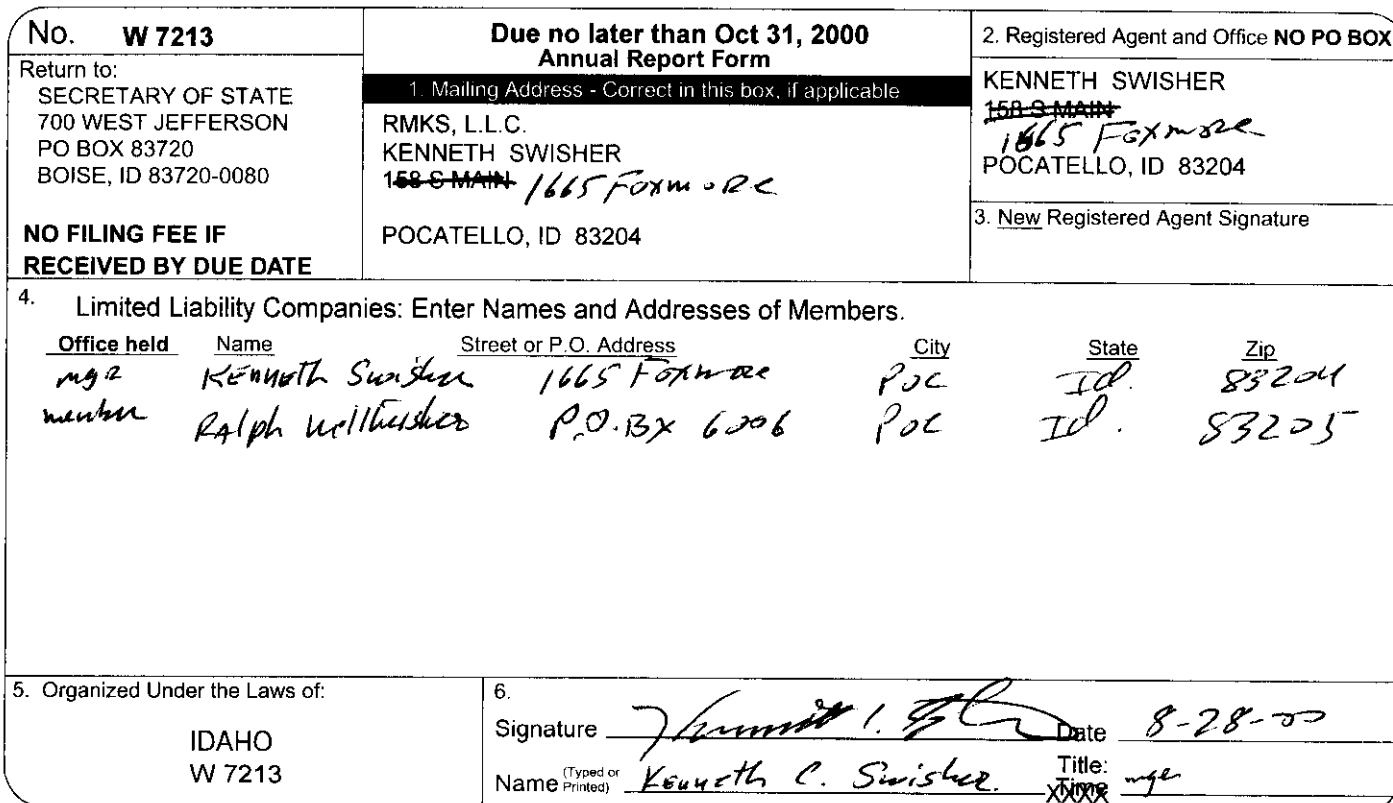 No. W 7213
Return to:
SECRETARY OF STATE
700 WEST JEFFERSON
PO BOX 83720
BOISE, ID 83720-0080
NO FILING FEE IF
RECEIVED BY DUE DATE
Due no later than Oct 31, 2000
Annual Report Form
1. Mailing Address - Correct in this box, if applicable
RMKS, L.L.C.
KENNETH SWISHER
158 S MAIN 1665 Foxmore
POCATELLO, ID 83204
2. Registered Agent and Office NO PO BOX
KENNETH SWISHER
158 S MAIN
1665 Foxmore
POCATELLO, ID 83204
3. New Registered Agent Signature
4. Limited Liability Companies: Enter Names and Addresses of Members.
Office held Name Street or P.O. Address City State Zip
mgr Kenneth Swisher 1665 Foxmore Poc Id. 83204
member Ralph P.O. Bx 6006 Poc Id. 83205
5. Organized Under the Laws of:
IDAHO
W 7213
6.
Signature Date 8-28-00
Name (Typed or Printed) Kenneth C. Swisher Title: mgr
Time